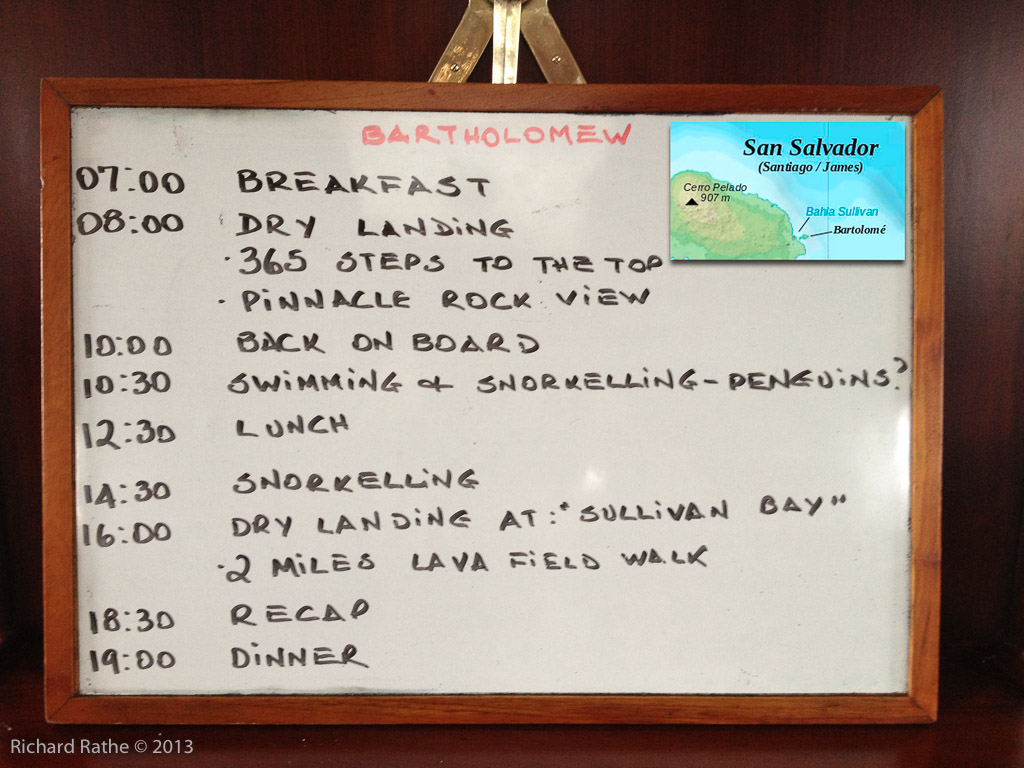 BARTHOLOMEW
San Salvador
(Santiago / James)
Cerro Pelado
907 m
Bahia Sullivan
Bartolomé
07:00 BREAKFAST
08:00 DRY LANDING
· 365 STEPS TO THE TOP
· PINNACLE ROCK VIEW
10:00 BACK ON BOARD
10:30 SWIMMING & SNORKELLING - PENGUINS?
12:30 LUNCH
14:30 SNORKELLING
16:00 DRY LANDING AT: "SULLIVAN BAY"
· 2 MILES LAVA FIELD WALK
18:30 RECAP
19:00 DINNER
Richard Rathe © 2013